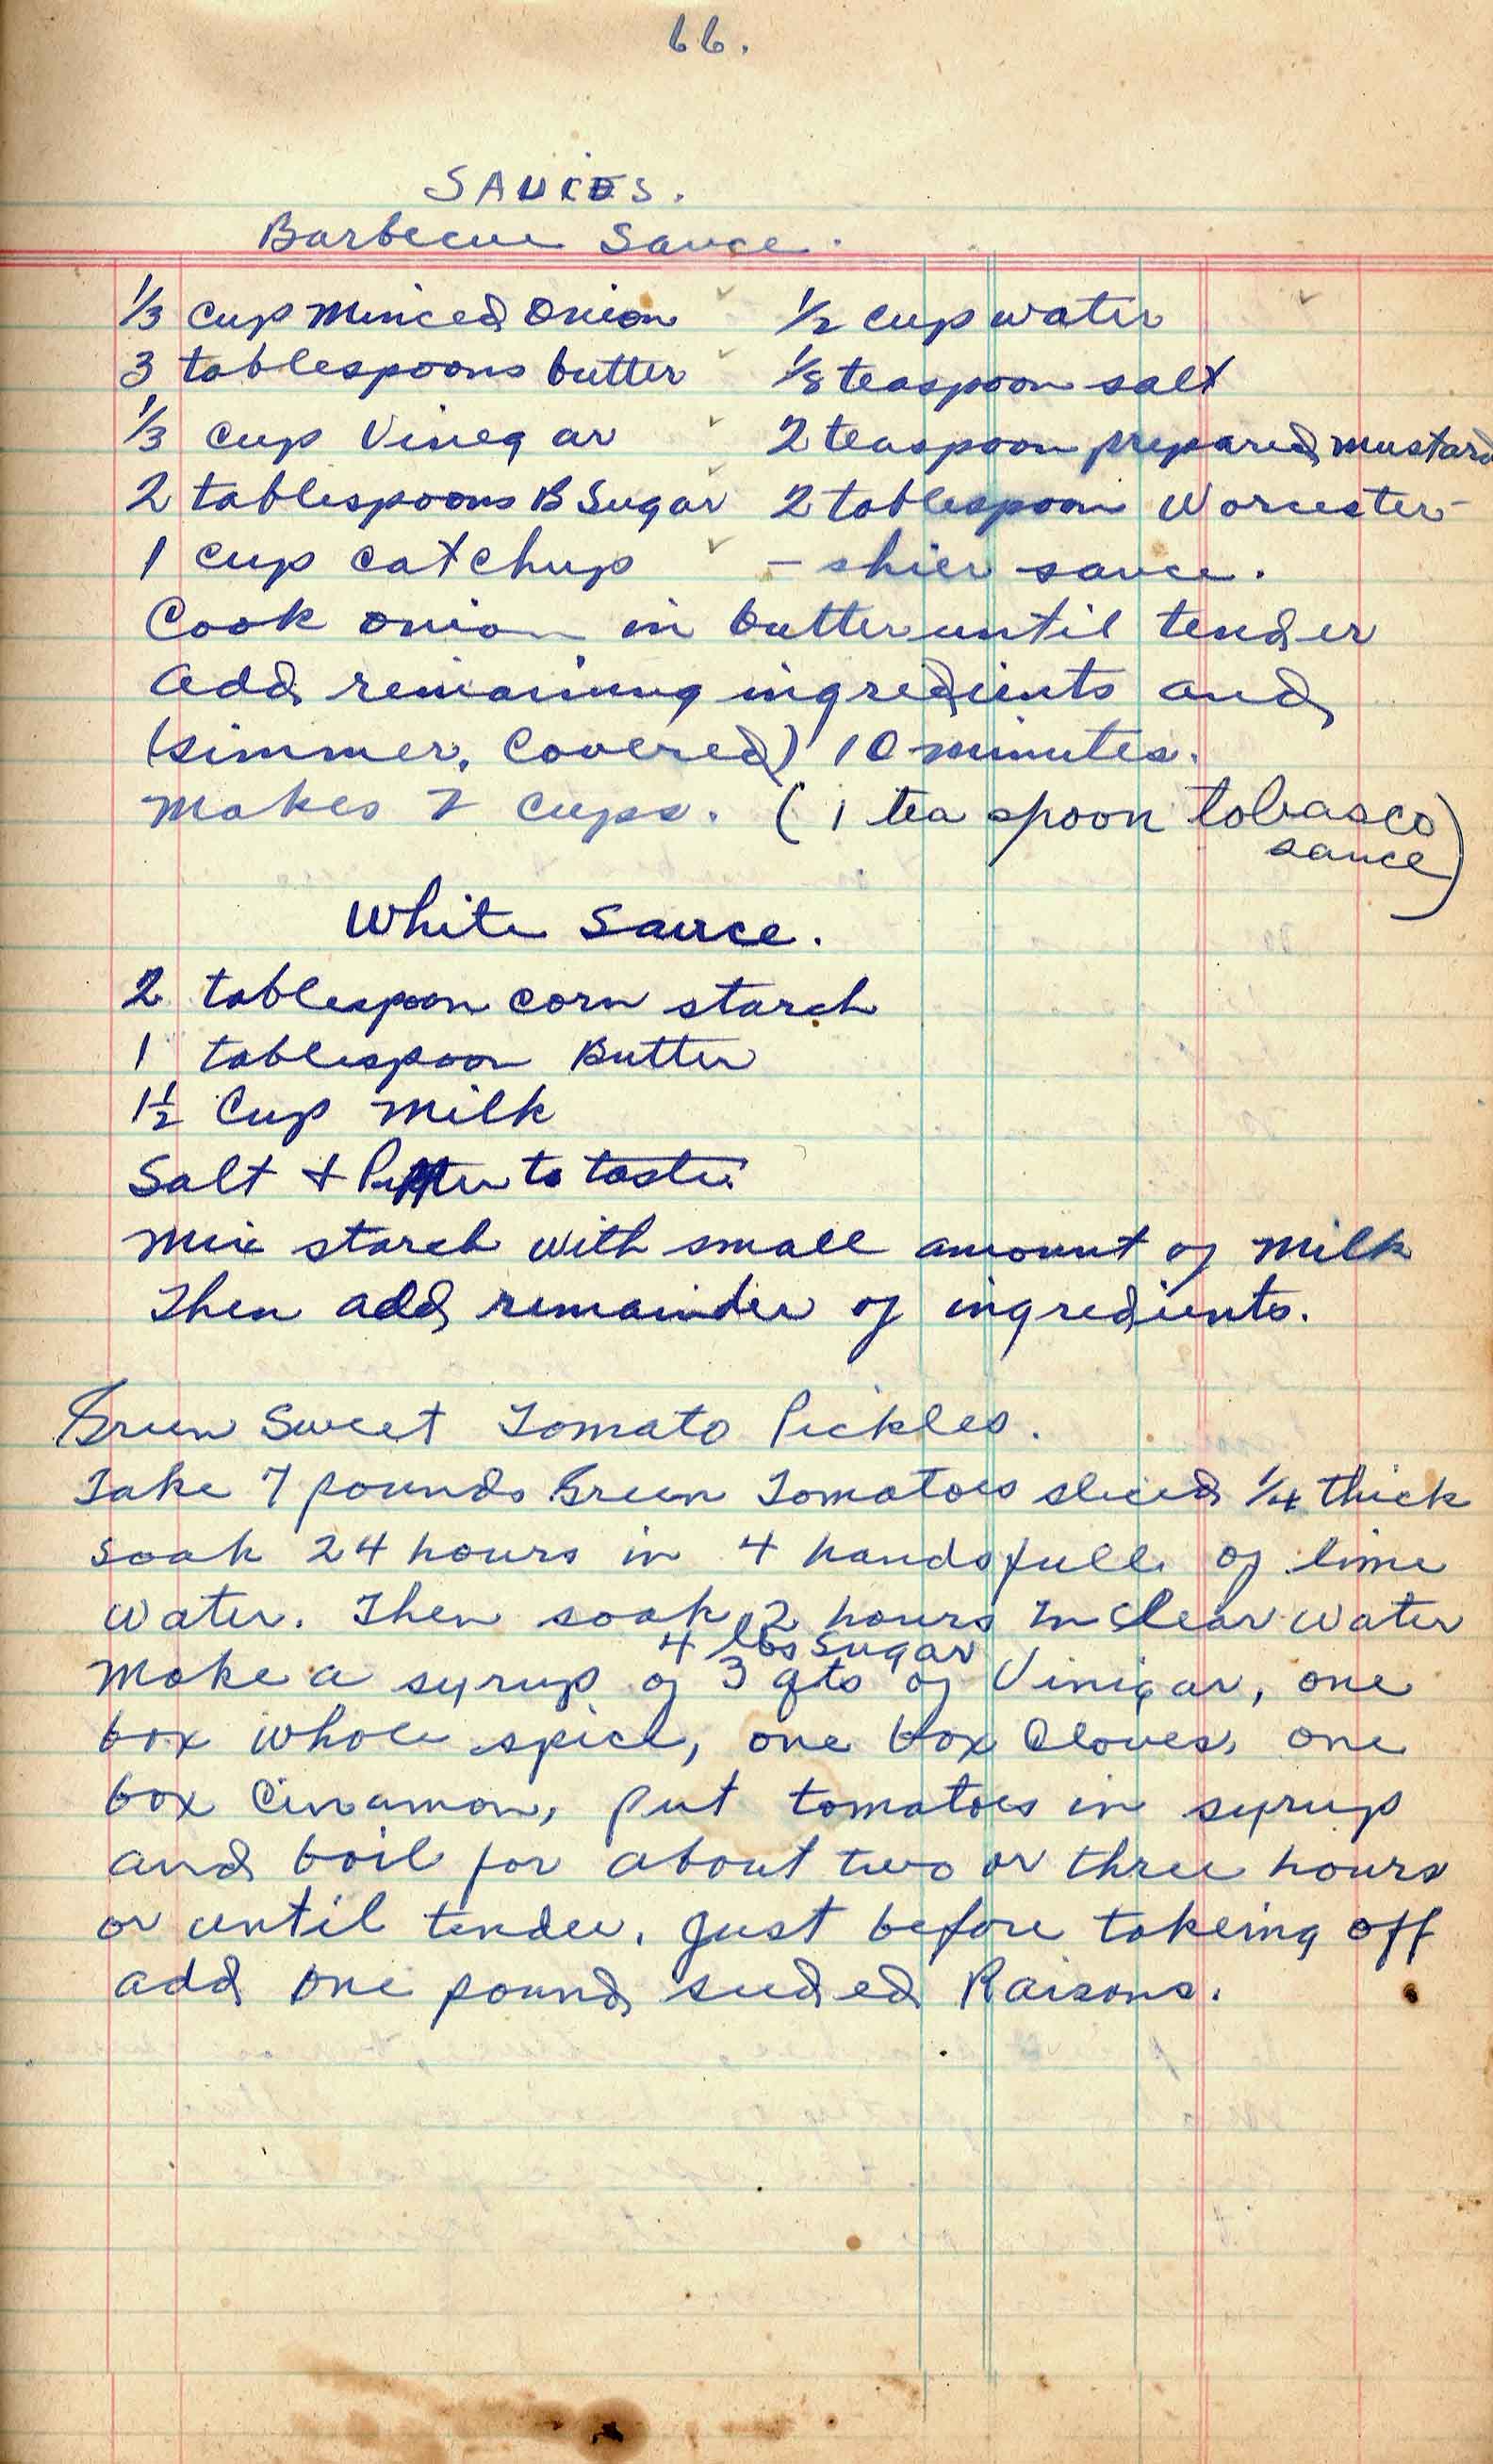 66.
SAUCES.
Barbecue Sauce.
1/3 cup minced onion 1/2 cup water
3 tablespoons butter 1/8 teaspoon salt
1/3 cup Vinegar 2 teaspoon prepared mustard
2 tablespoons B Sugar 2 tablespoon Worcester-
1 cup catchup - shier sauce.
Cook onion in butter until tender
add remaining ingredients and
(simmer, covered) 10 minutes.
makes 2 cups. (1 tea spoon tobasco
sauce)
White Sauce.
2 tablespoon corn starch
1 tablespoon Butter
1 1/2 Cup milk
Salt + Pepper to taste
mix starch with small amount of milk
Then add remainder of ingredients.
Green Sweet Tomato Pickles.
Take 7 pounds Green Tomatoes sliced 1/4 thick
soak 24 hours in 4 handsfull of lime
water. Then soak 2 hours in clear water
4 lbs sugar
make a syrup of 3 qts of Vinigar, one
box whole spice, one box Cloves, one
box Cinamon, put tomatoes in syrup
and boil for about two or three hours
or until tender. Just before takeing off
add one pound seeded Raisons.